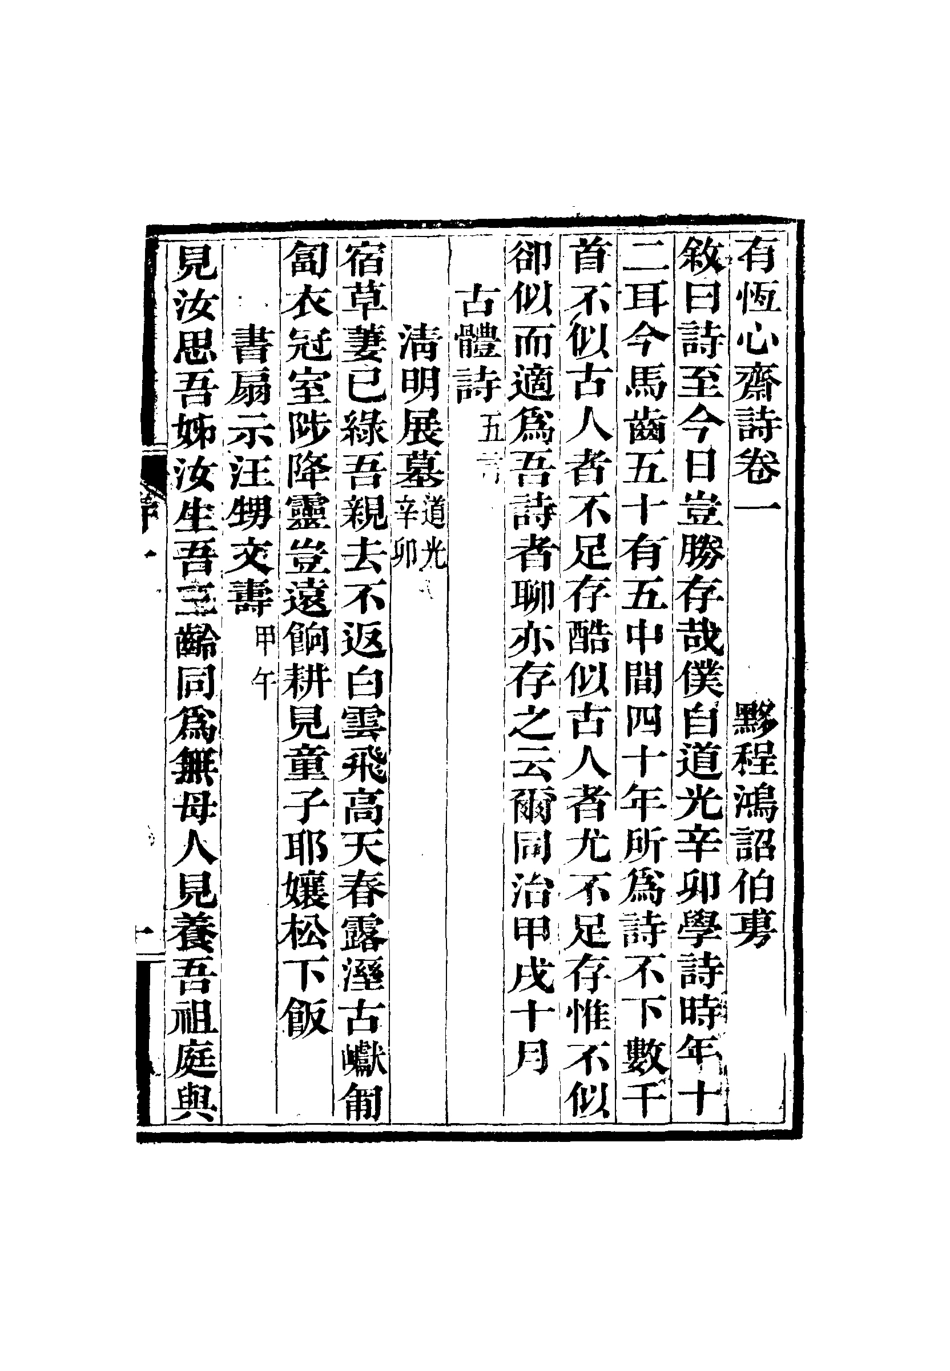 有恆心齋詩卷一
黟程鴻詔伯旉
敘曰詩至今日豈勝存哉僕自道光辛卯學詩時年十
二耳今馬齒五十有五中間四十年所爲詩不下數千
首不似古人者不足存酷似古人者尤不足存惟不似
卻似而適爲吾詩者聊亦存之云爾同治甲戌十月
古體詩五言
清明展墓道光辛卯
宿草萋已綠吾親去不返白雲飛高天春露溼古巘匍
匐衣冠室陟降靈豈遠餉耕見童子耶孃松下飯
書扇示汪甥文壽甲午
見汝思吾姊汝生吾三齡同爲無母人見養吾祖庭與